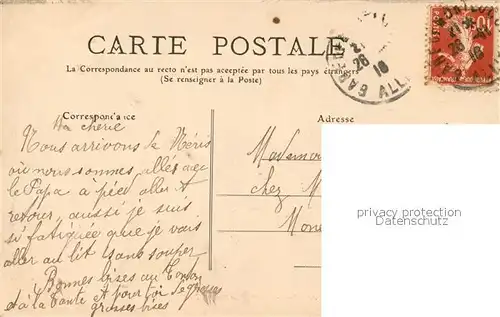 CARTE POSTALE
La Correspondance au recto n'est pas acceptée par tous les pays étrangers
(Se renseigner à la Poste)
Correspondance
Adresse
Ma chérie
Nous arrivons de Néris
où nous sommes allés avec
le Papa a pied aller et
retour, aussi je suis
si fatiguée que je vais
aller au lit sans souper
Bonnes bises au Tonton
et à la Tante et pour toi
grosses bises
chez M
privacy protection
Datenschutz
GARE
26
10
ALL
10